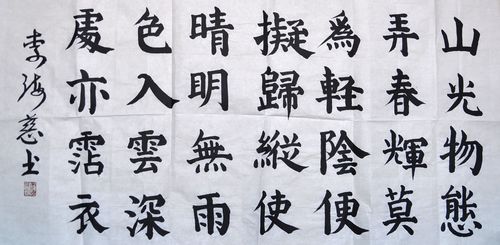 山光物態
弄春輝莫
爲軽陰便
擬歸縱使
晴明無雨
色入雲深
處亦霑衣
李海慈书